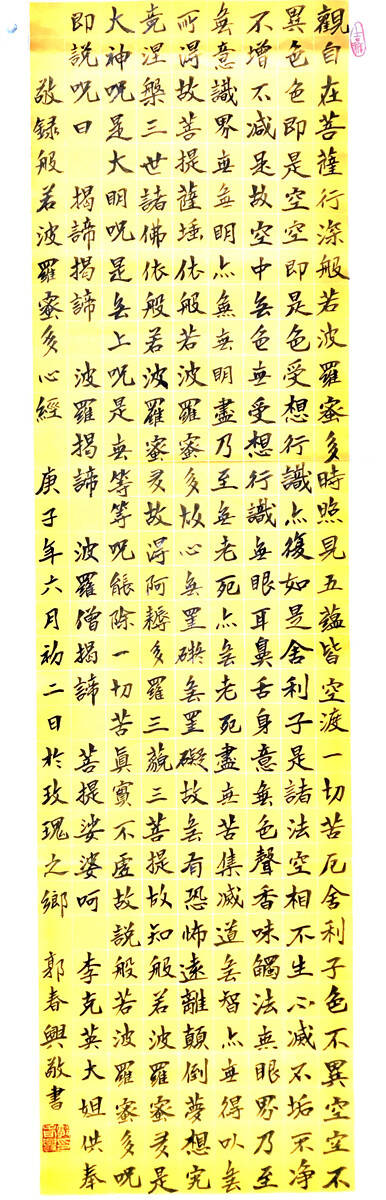 觀自在菩薩行深般若波羅蜜多時照見五蘊皆空渡一切苦厄舍利子色不異空空不
異色色即是空空即是色受想行識亦復如是舍利子是諸法空相不生不滅不垢不净
不增不減是故空中無色無受想行識無眼耳鼻舌身意無色聲香味觸法無眼界乃至
無意識界無無明亦無無明盡乃至無老死亦無老死盡無苦集滅道無智亦無得以無
所得故菩提薩埵依般若波羅蜜多故心無罣礙無罣礙故無有恐怖遠離顛倒夢想究
竟涅槃三世諸佛依般若波羅蜜多故得阿耨多羅三藐三菩提故知般若波羅蜜多是
大神咒是大明咒是無上咒是無等等咒能除一切苦真實不虛故說般若波羅蜜多咒
即說咒曰 揭諦揭諦 波羅揭諦 波羅僧揭諦 菩提娑婆呵 李克英大姐供奉
敬録般若波羅蜜多心經 庚子年六月初二日於玫瑰之鄉 郭春興敬書